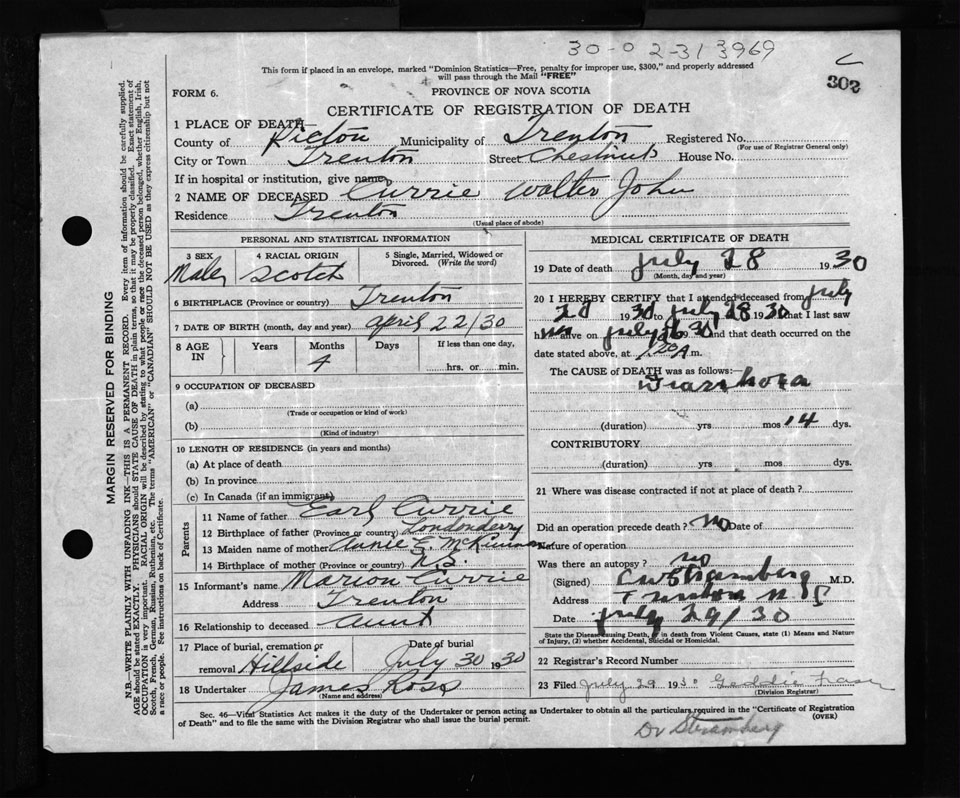 30-0 2-31 3969
This form if placed in an envelope, marked "Dominion Statistics—Free, penalty for improper use, $300," and properly addressed
will pass through the Mail "FREE"
302
FORM 6.
PROVINCE OF NOVA SCOTIA
CERTIFICATE OF REGISTRATION OF DEATH
1 PLACE OF DEATH—
County of Pictou Municipality of Trenton Registered No.
(For use of Registrar General only)
City or Town Trenton Street Chestnut House No.
If in hospital or institution, give name
2 NAME OF DECEASED Currie Walter John
Residence Trenton
(Usual place of abode)
PERSONAL AND STATISTICAL INFORMATION
3 SEX 4 RACIAL ORIGIN 5 Single, Married, Widowed or
Divorced. (Write the word)
Male Scotch
6 BIRTHPLACE (Province or country) Trenton
7 DATE OF BIRTH (month, day and year) April 22/30
8 AGE IN Years Months Days If less than one day,
4 hrs. or min.
9 OCCUPATION OF DECEASED
(a)
(Trade or occupation or kind of work)
(b)
(Kind of industry)
10 LENGTH OF RESIDENCE (in years and months)
(a) At place of death
(b) In province
(c) In Canada (if an immigrant)
Parents
11 Name of father Earl Currie
12 Birthplace of father (Province or country) Londonderry
13 Maiden name of mother Annie E. McKinnon
14 Birthplace of mother (Province or country) N.S.
15 Informant's name Marion Currie
Address Trenton
16 Relationship to deceased Aunt
17 Place of burial, cremation or Date of burial
removal Hillside July 30 1930
18 Undertaker James Ross
(Name and address)
MEDICAL CERTIFICATE OF DEATH
19 Date of death July 28 1930
(Month, day and year)
20 I HEREBY CERTIFY that I attended deceased from July
1930 to July 28 1930 that I last saw
him alive on July 1930 and that death occurred on the
date stated above, at m.
The CAUSE of DEATH was as follows:—
Diarrhoea
(duration) yrs mos 14 dys.
CONTRIBUTORY
(duration) yrs mos. dys.
21 Where was disease contracted if not at place of death?
Did an operation precede death? no Date of
Nature of operation
Was there an autopsy? no
(Signed) Stramberg M.D.
Address Trenton N.S.
Date July 29/30
State the Disease causing Death, or in death from Violent Causes, state (1) Means and Nature
of Injury, (2) whether Accidental, Suicidal or Homicidal.
22 Registrar's Record Number
23 Filed July 29 1930 Geddie Fraser
(Division Registrar)
Sec. 46—Vital Statistics Act makes it the duty of the Undertaker or person acting as Undertaker to obtain all the particulars required in the "Certificate of Registration
of Death" and to file the same with the Division Registrar who shall issue the burial permit.
(OVER)
Dr Stramberg
MARGIN RESERVED FOR BINDING
N.B.—WRITE PLAINLY WITH UNFADING INK—THIS IS A PERMANENT RECORD. Every item of information should be carefully supplied.
AGE should be stated EXACTLY. PHYSICIANS should STATE CAUSE OF DEATH in plain terms, so that it may be properly classified. Exact statement of
OCCUPATION is very important. RACIAL ORIGIN will be described by stating to what people or race the deceased person belonged, whether English, Irish,
Scotch, French, German, Russian, Ruthenian, etc. The terms "AMERICAN" or "CANADIAN" SHOULD NOT BE USED as they express citizenship but not
a race or people. See instructions on back of Certificate.